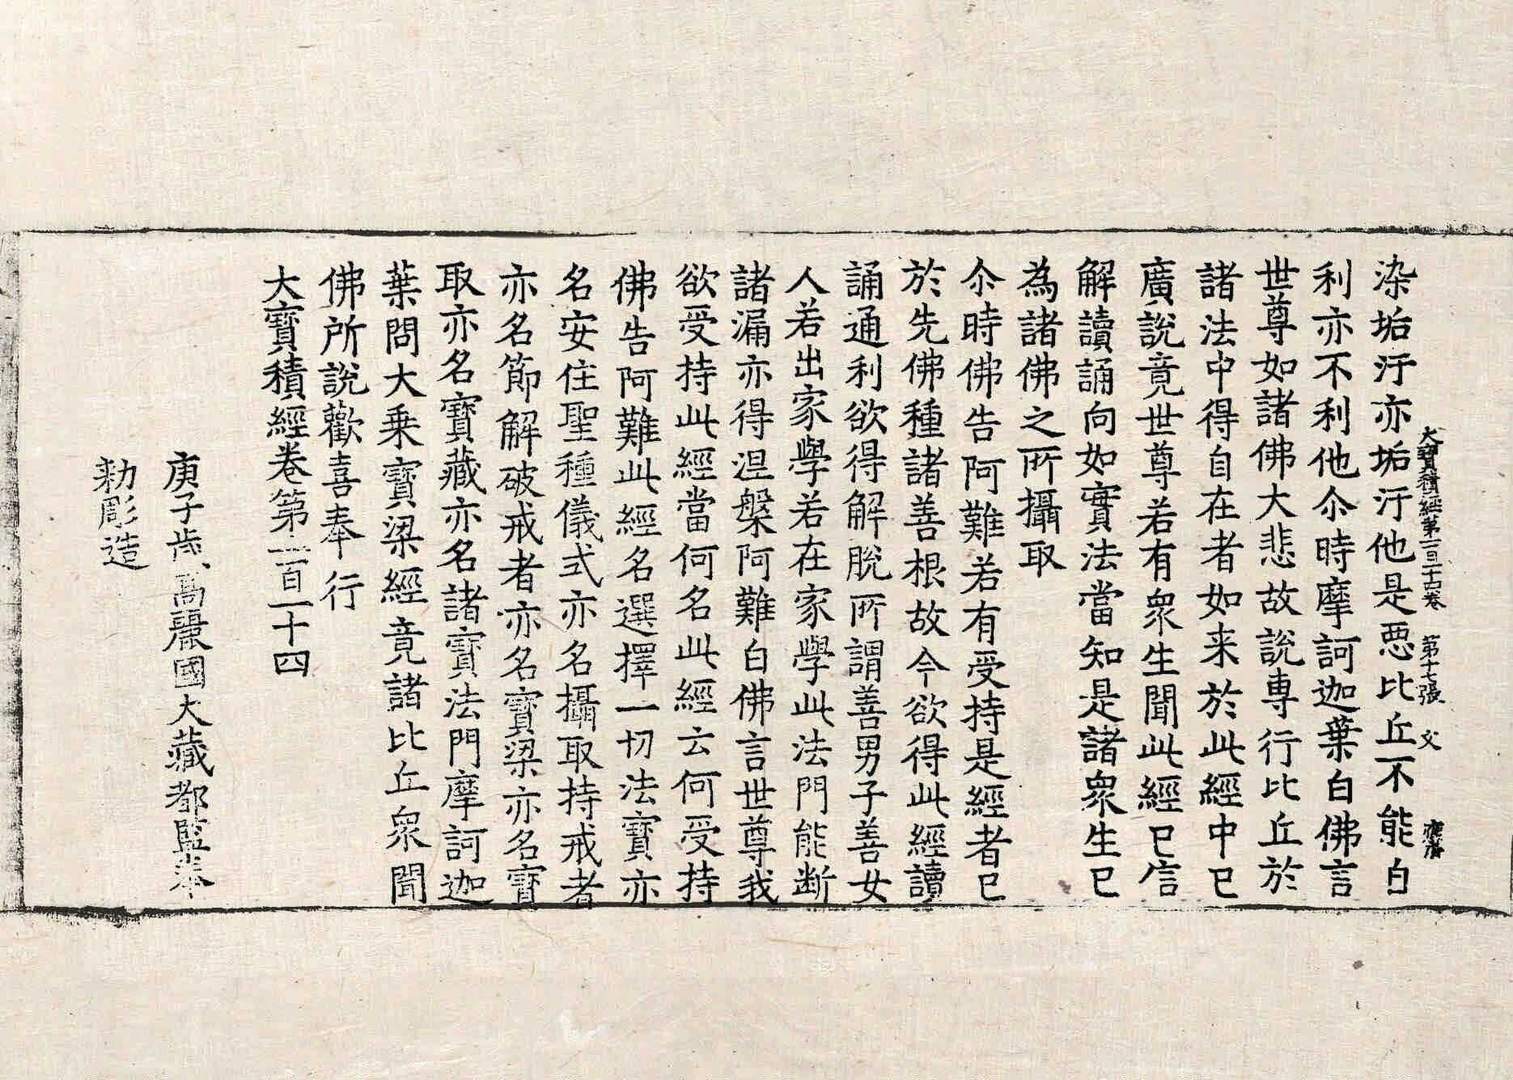 大寶積經第一百一十四卷　第十七張　文
染垢汙亦垢汙他是惡比丘不能自
利亦不利他尒時摩訶迦葉白佛言
世尊如諸佛大悲故說専行比丘於
諸法中得自在者如来於此經中已
廣說竟世尊若有衆生聞此經已信
解讀誦向如實法當知是諸衆生已
為諸佛之所攝取
尒時佛告阿難若有受持是經者已
於先佛種諸善根故今欲得此經讀
誦通利欲得解脫所謂善男子善女
人若出家學若在家學此法門能断
諸漏亦得涅槃阿難白佛言世尊我
欲受持此經當何名此經云何受持
佛告阿難此經名選擇一切法寶亦
名安住聖種儀式亦名攝取持戒者
亦名節解破戒者亦名寶梁亦名寶
取亦名寶藏亦名諸寶法門摩訶迦
葉問大乘寶梁經竟諸比丘衆聞
佛所說歡喜奉行
大寶積經卷第一百一十四
庚子歲高麗國大藏都監奉
勑彫造